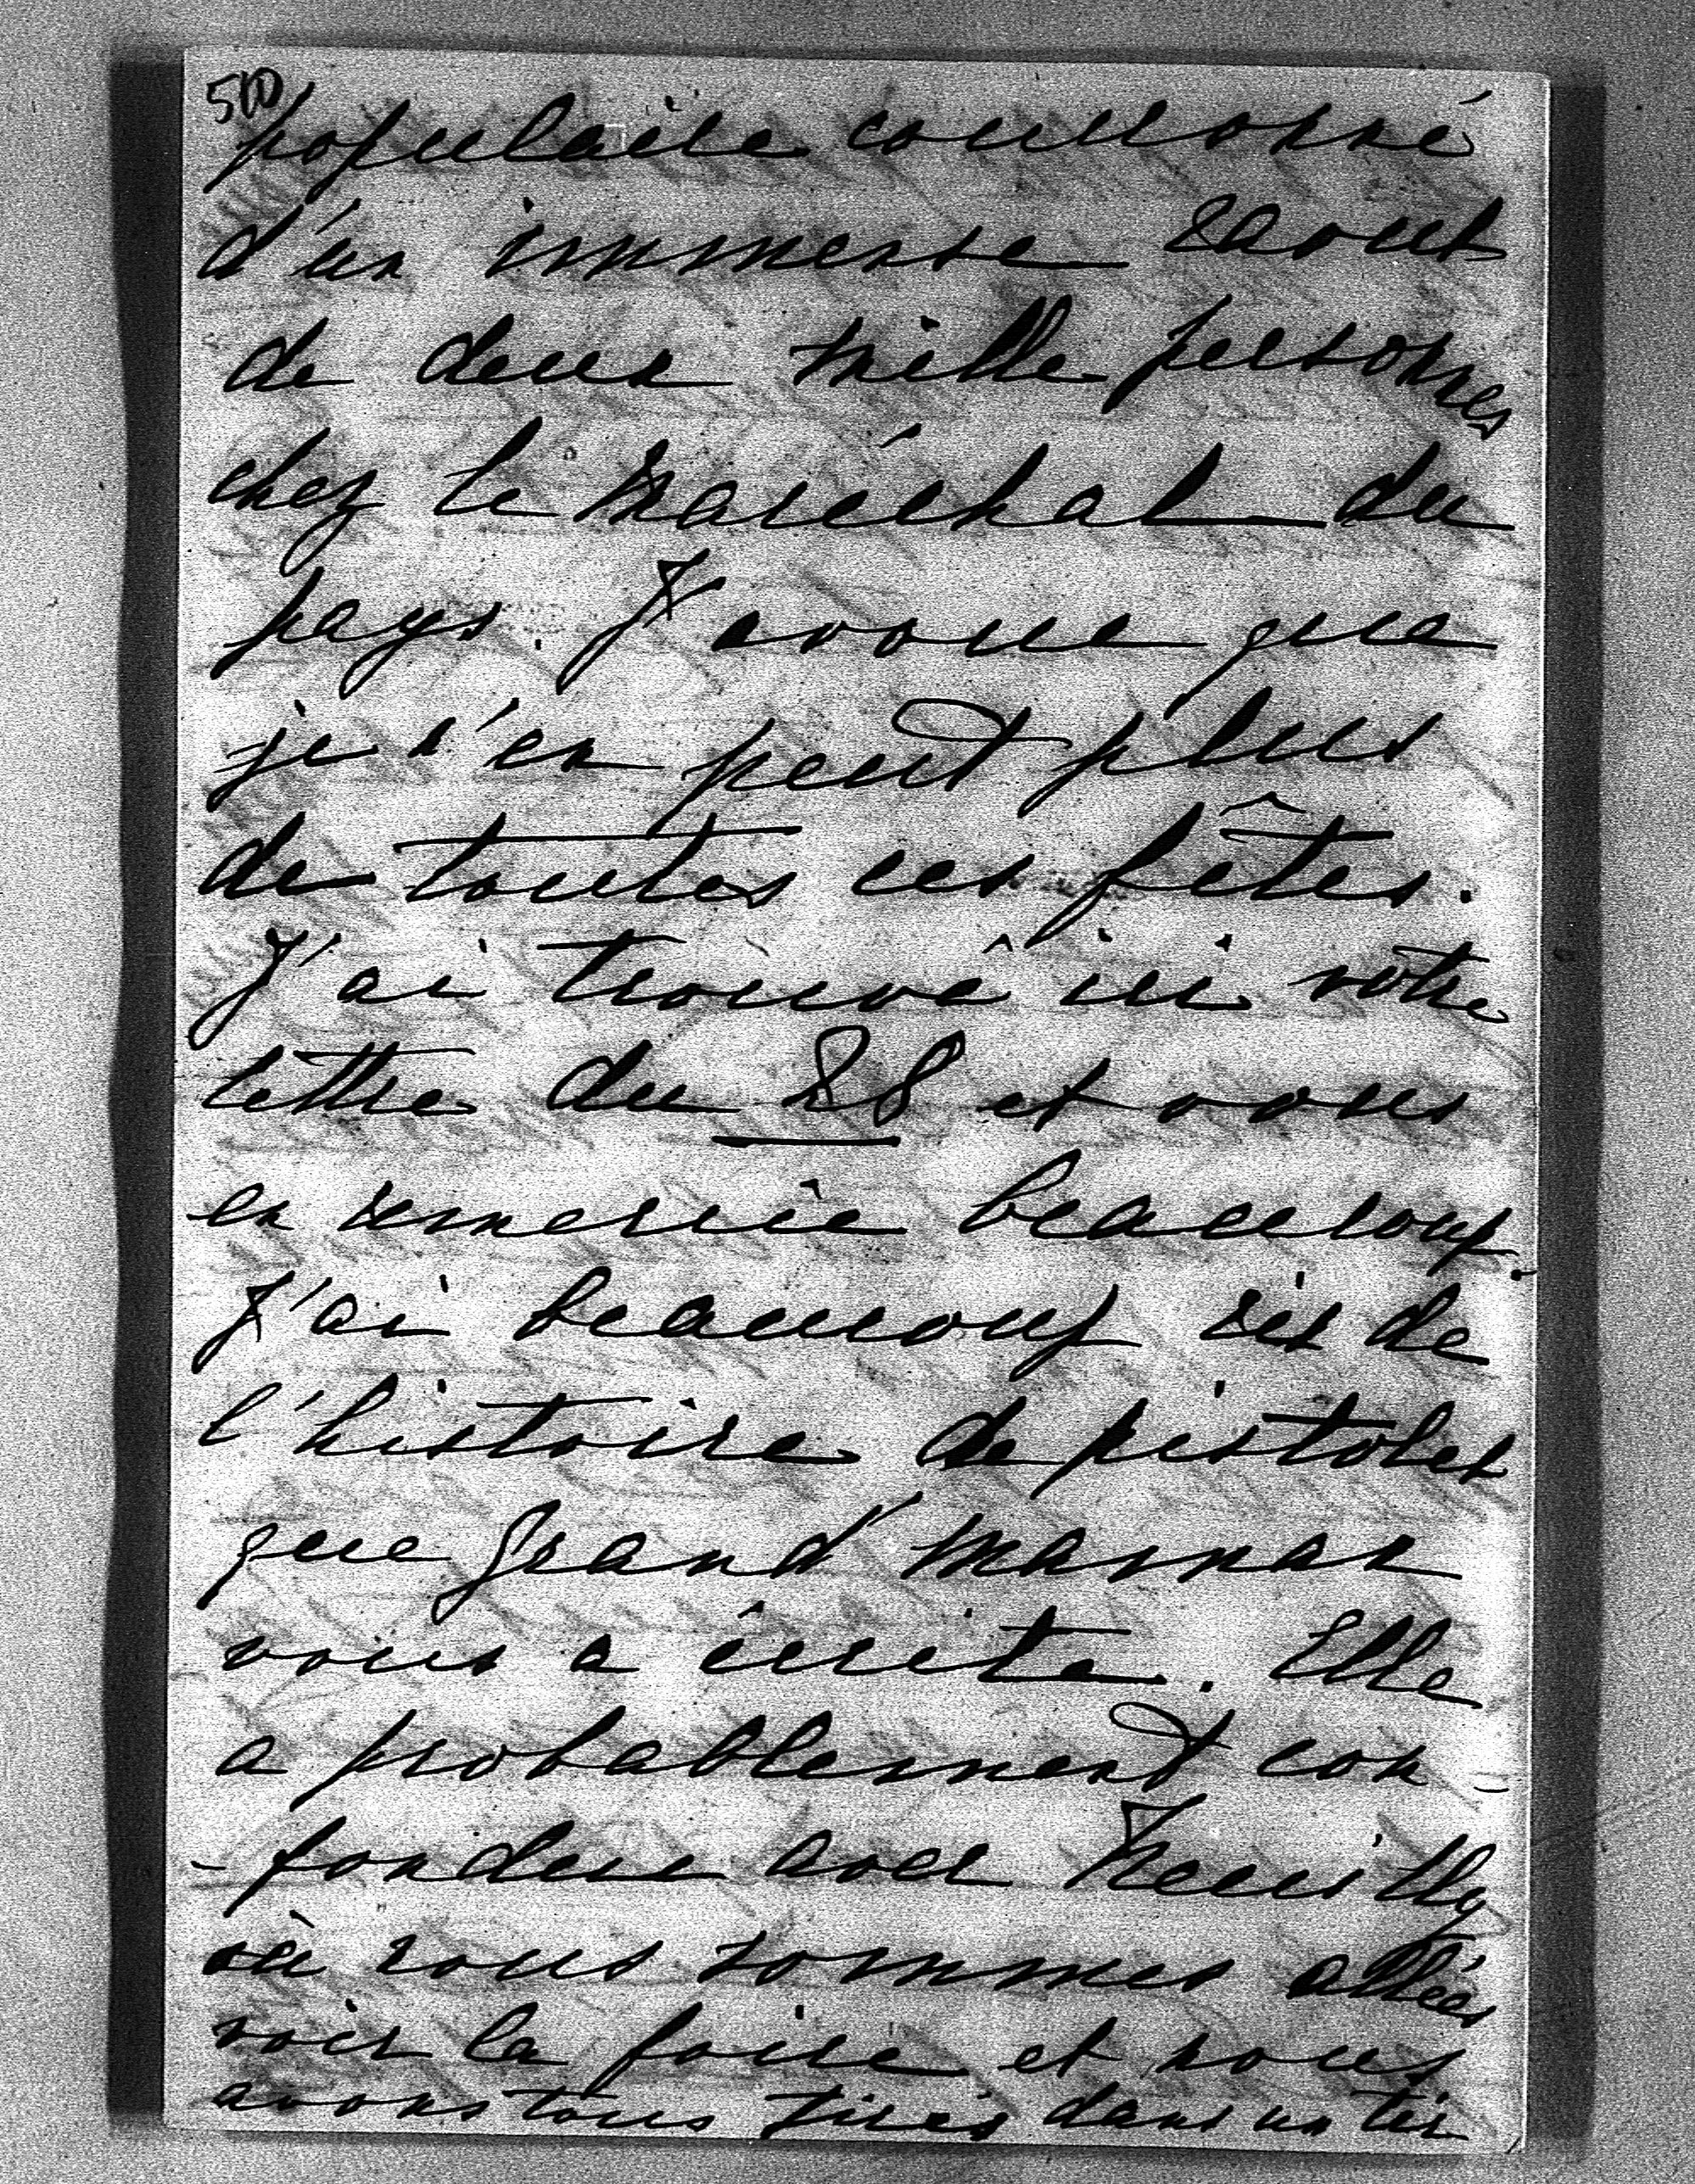 500
populaire couronné
d'un immense raout
de deux mille personnes
chez le maréchal du
pays. J'avoue que
je n'en peut plus
de toutes ces fêtes.
J'ai trouvé ici votre
lettre du 28 et vous
en remercie beaucoup.
J'ai beaucoup ris de
l'histoire de pistolet
que grand'maman
vous a écrite. Elle
a probablement con-
-fondue avec Neuilly
où nous sommes allées
voir la foire et nous
avons tous tirés dans un tir